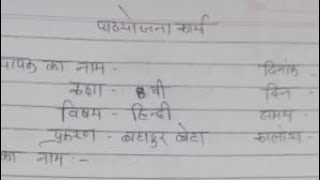 पाठयोजना कार्य
यापक का नाम - दिनांक -
कक्षा - 8 वी दिन -
विषय - हिन्दी समय -
प्रकरण - बहादुर बेटा कालांश -
का नाम :-